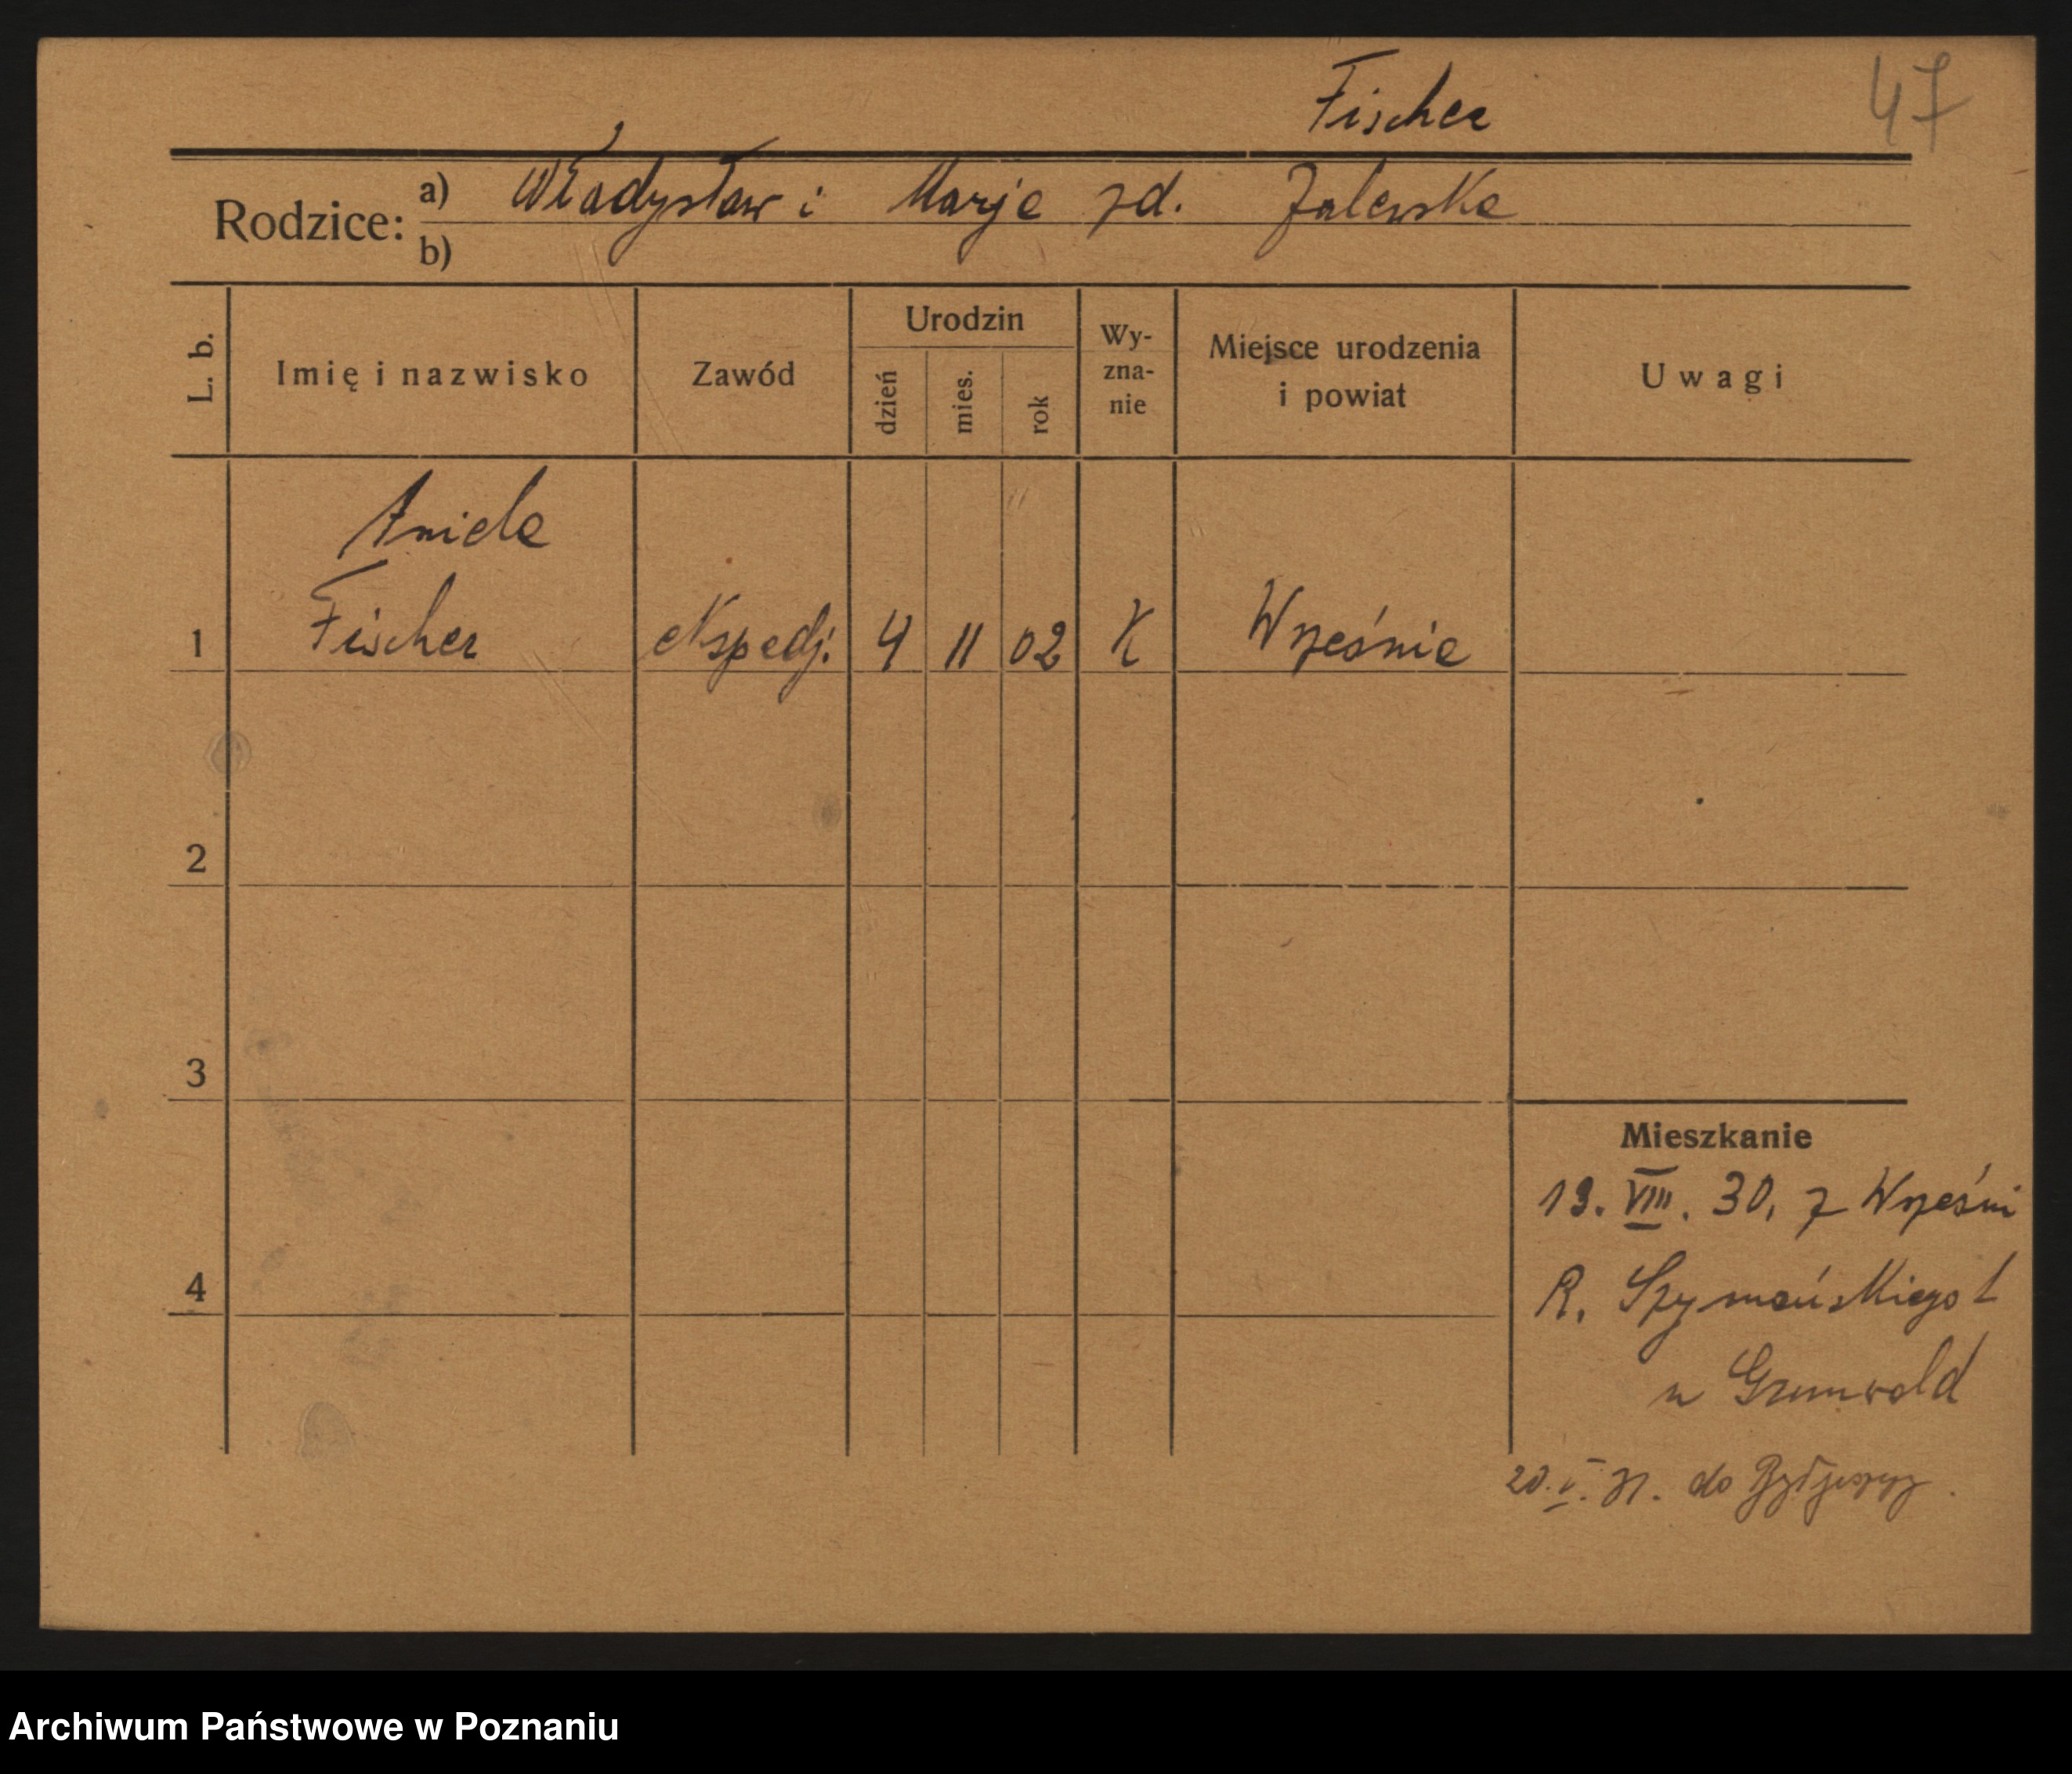 Fischer
47
Rodzice: a) Władysław i Marja zd. Zalewska
b)
L. b.
Imię i nazwisko
Zawód
Urodzin
dzień
mies.
rok
Wy-
zna-
nie
Miejsce urodzenia
i powiat
Uwagi
Aniela
1 Fischer ekspedj. 4 11 02 K Września
2
3
4
Mieszkanie
19. VIII. 30, z Wrześni
R. Szymańskiego 1
u Grunwald
20. V. 31. do Bydgoszczy.
Archiwum Państwowe w Poznaniu